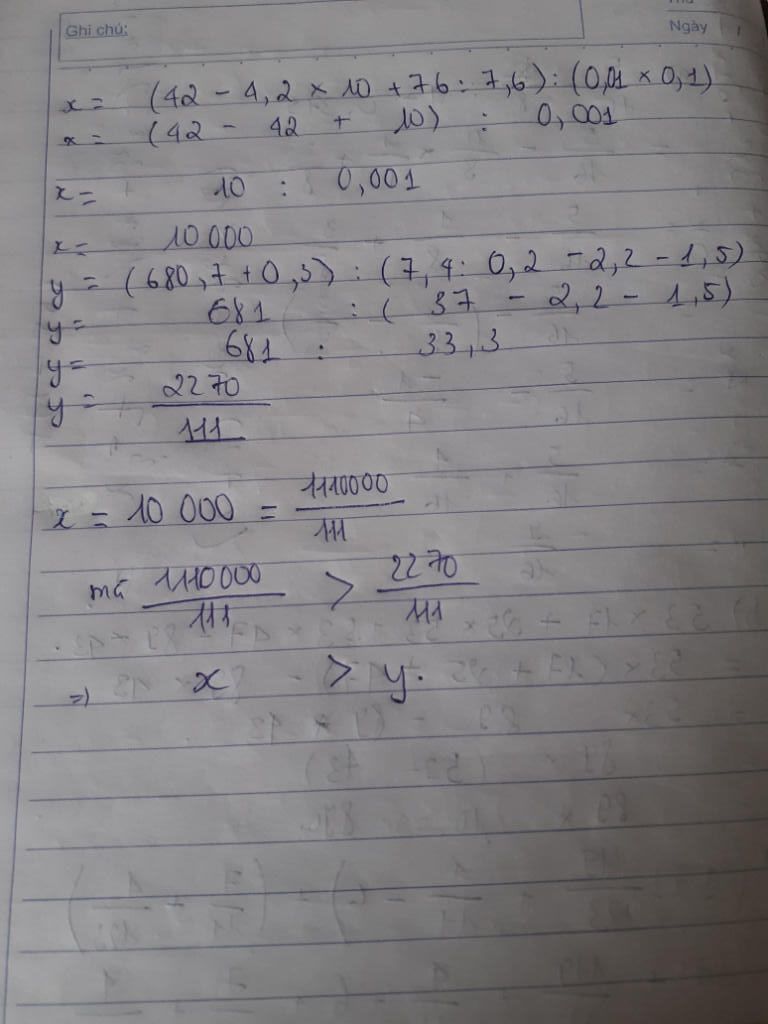 Ghi chú:
Ngày
x = (42 - 4,2 × 10 + 76 : 7,6) : (0,01 × 0,1)
x = (42 - 42 + 10) : 0,001
x = 10 : 0,001
x = 10 000
y = (680,7 + 0,3) : (7,4 : 0,2 - 2,2 - 1,5)
y = 681 : ( 37 - 2,2 - 1,5)
y = 681 : 33,3
y = 2270/111
x = 10 000 = 1110000/111
mà 1110000/111 > 2270/111
=) x > y.